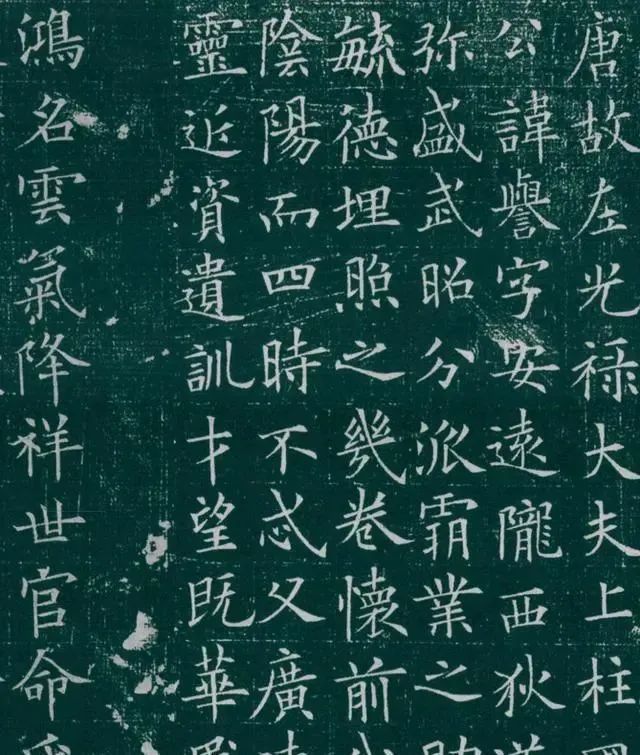 唐故左光禄大夫上柱
公諱譽字安遠隴西狄
弥盛武昭分派霸業之
毓德埋照之幾卷懷前
陰陽而四時不忒父廣
靈近資遺訓才望既華
鴻名雲氣降祥世官命